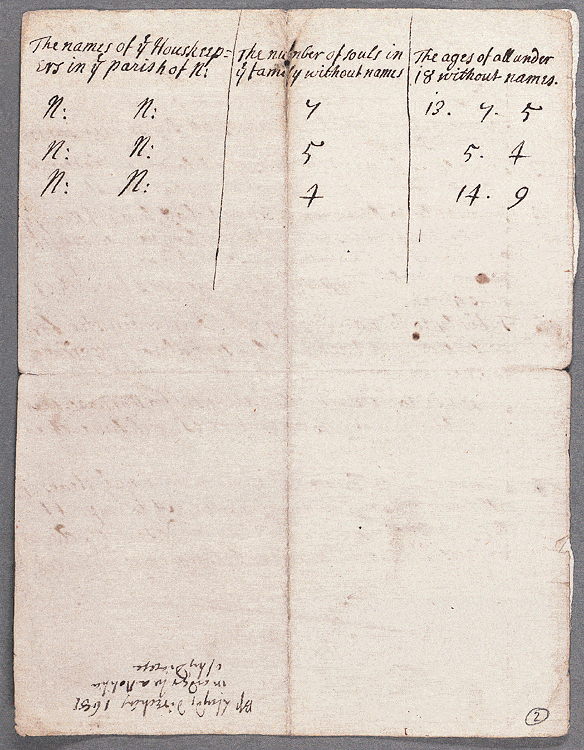 The names of yͤ Houskeep=
ers in yͤ parish of N:
The number of souls in
yͤ family without names
The ages of all under
18 without names.
N: N: 7 13. 7. 5
N: N: 5 5. 4
N: N: 4 14. 9
Bp Lloyds Directions 1681
in order to a Notitia
of his Diocese
2